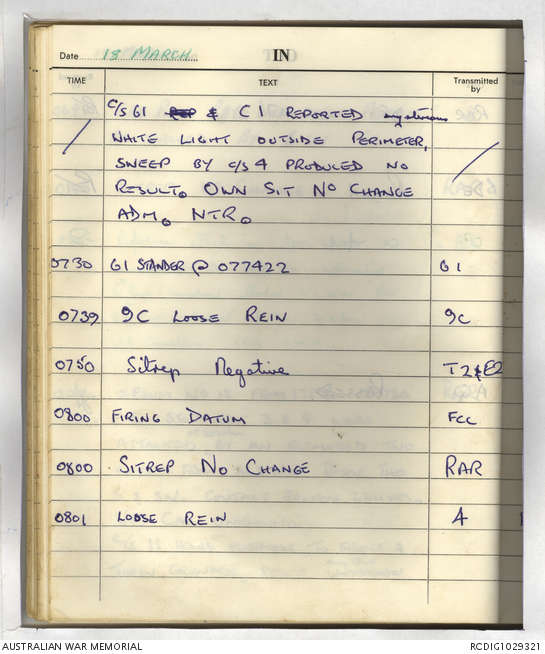 Date 18 MARCH IN
TIME TEXT Transmitted by
C/S 61 & C1 REPORTED mysterious
WHITE LIGHT OUTSIDE PERIMETER,
SWEEP BY C/S 4 PRODUCED NO
RESULT. OWN SIT NO CHANGE
ADM. NTR.
0730 61 STANDER @ 077422 61
0739 9C LOOSE REIN 9C
0750 Sitrep Negative T2&E2
0800 FIRING DATUM FCC
0800 SITREP NO CHANGE RAR
0801 LOOSE REIN A
AUSTRALIAN WAR MEMORIAL RCDIG1029321